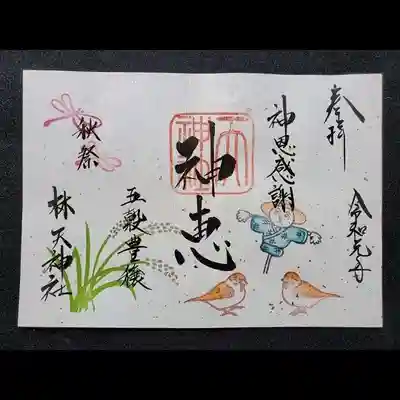 奉拝
令和元年
神恩感謝
神恵
五穀豊穣
秋祭
林天神社